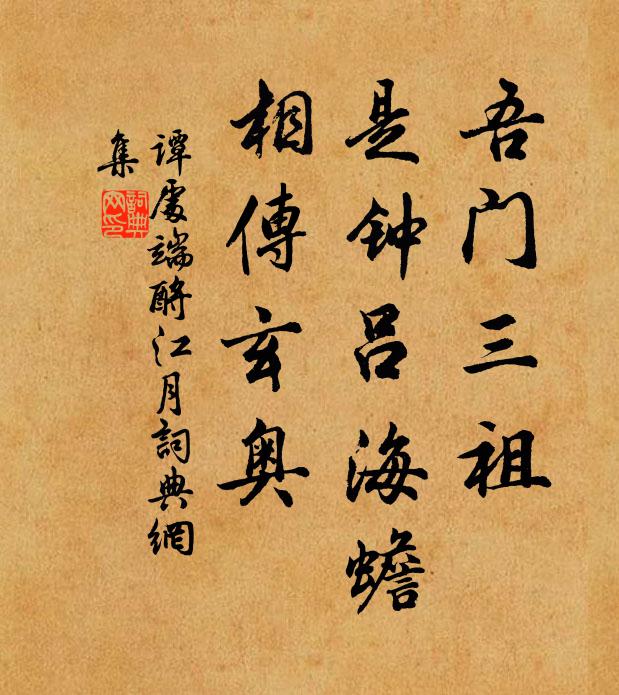 吾门三祖
是钟吕海蟾
相傳玄奥
谭處端酹江月詞典網
集
詞典
网印